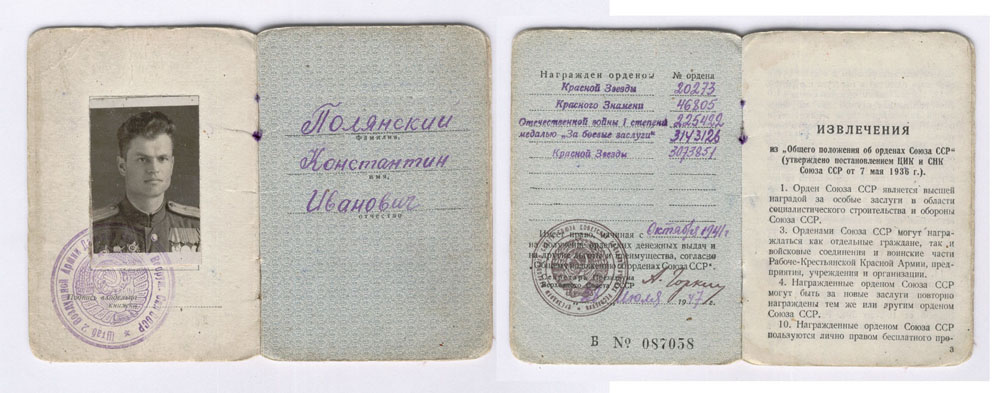 Штаб 2 Воздушной Армии
СССР
Подпись владельца
книжки
Полянский
фамилия,
Константин
имя,
Иванович
отчество
Награжден орденом № ордена
Красной Звезды 20273
Красного Знамени 46805
Отечественной войны I степени 225492
медалью „За боевые заслуги" 3143126
Красной Звезды 3073851
Имеет право, начиная с Октября 1941 г.
на получение орденских денежных выдач и
на другие льготы и преимущества, согласно
„Общему положению об орденах Союза ССР".
Секретарь Президиума
Верховного Совета СССР А. Горкин
Июля 1947 г.
Б № 087058
ИЗВЛЕЧЕНИЯ
из „Общего положения об орденах Союза ССР"
(утверждено постановлением ЦИК и СНК
Союза ССР от 7 мая 1936 г.).
1. Орден Союза ССР является высшей
наградой за особые заслуги в области
социалистического строительства и обороны
Союза ССР.
3. Орденами Союза ССР могут награ-
ждаться как отдельные граждане, так и
войсковые соединения и воинские части
Рабоче-Крестьянской Красной Армии, пред-
приятия, учреждения и организации.
4. Награжденные орденом Союза ССР
могут быть за новые заслуги повторно
награждены тем же или другим орденом
Союза ССР.
10. Награжденные орденом Союза ССР
пользуются лично правом бесплатного про-
3